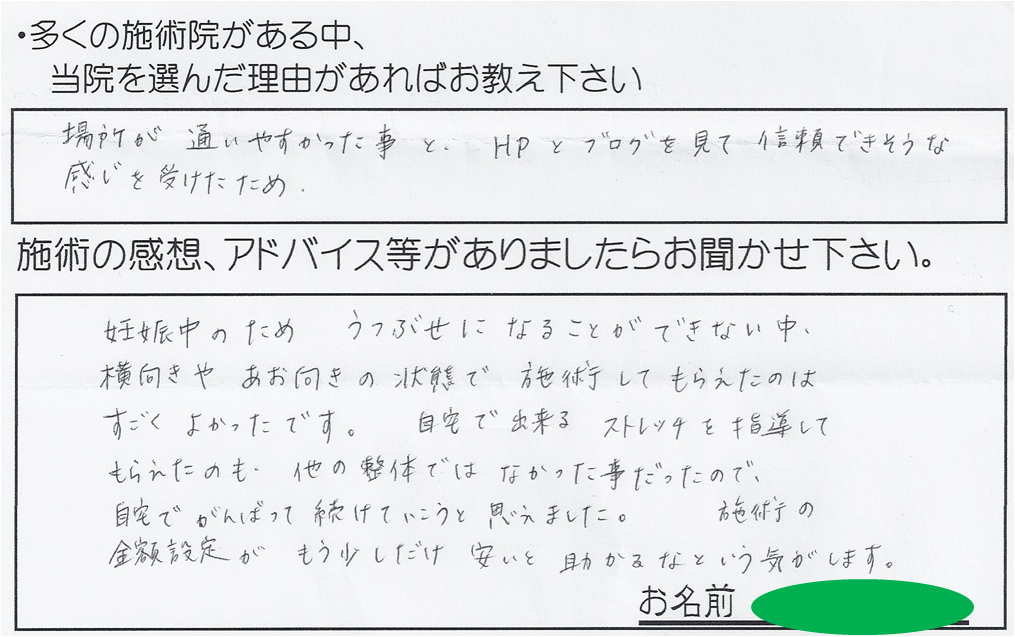 ・多くの施術院がある中、
当院を選んだ理由があればお教え下さい
場所が 通いやすかった事と、HPとブログを見て 信頼できそうな
感じを受けたため.
施術の感想、アドバイス等がありましたらお聞かせ下さい。
妊娠中のため うつぶせになることができない中、
横向きや あお向きの状態で 施術してもらえたのは
すごく よかったです。 自宅で出来る ストレッチを指導して
もらえたのも、他の整体では なかった事だったので、
自宅でがんばって続けていこうと思えました。 施術の
金額設定が もう少しだけ 安いと 助かるなという気がします。
お名前